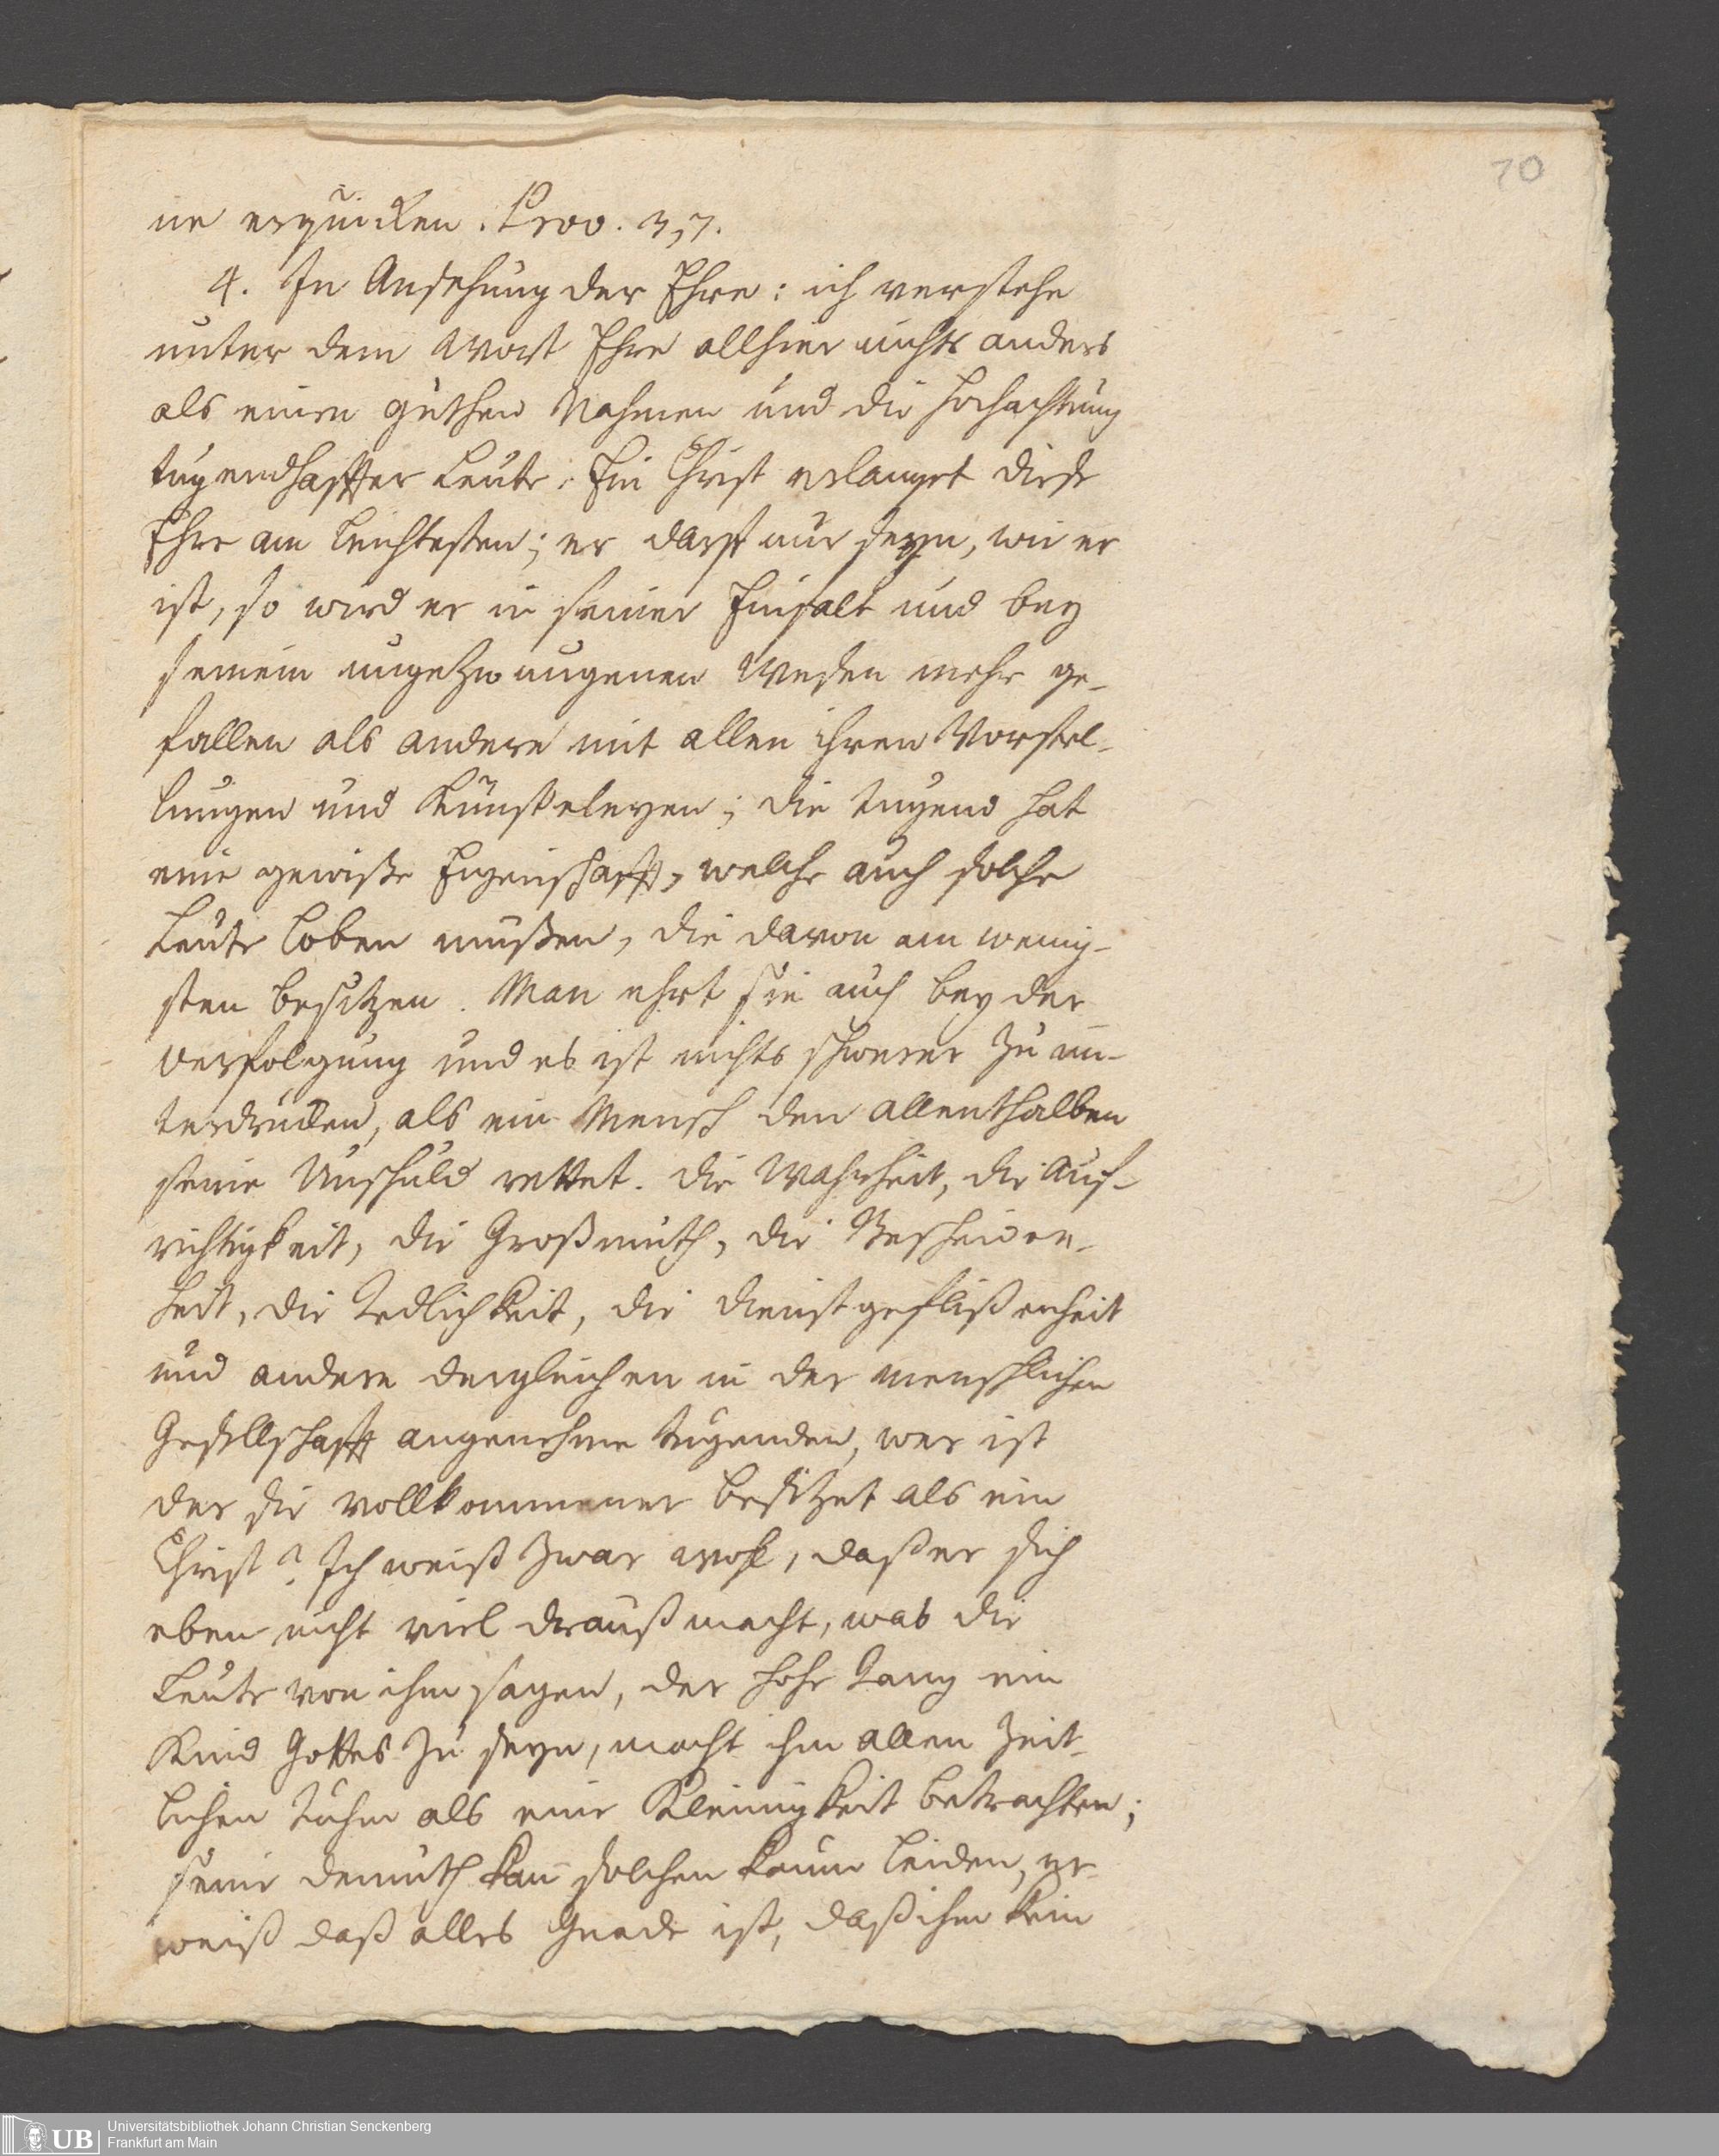 70
ne erquicken. Prov. 3,7.
4. In Ansehung der Ehre: ich verstehe
unter dem Wort Ehre allhier nichts anders
als einen guthen Nahmen und die Hochachtung
tugendhaffter Leute. Ein Christ erlanget diese
Ehre am leichtesten; er darff nur seyn, wie er
ist, so wird er in seiner Einfalt und bey
seinem ungezwungenen Wesen mehr ge-
fallen als andere mit allen ihren Vorstel-
lungen und Künsteleyen; die Tugend hat
eine gewiße Eigenschafft, welche auch solche
Leute loben mußen, die davon am wenig-
sten besitzen. Man ehrt sie auch bey der
Verfolgung und es ist nichts schwerer zu un-
terdrucken, als ein Mensch den allenthalben
seine Unschuld rettet. Die Wahrheit, die Auf-
richtigkeit, die Großmuth, die Bescheiden-
heit, die Redlichkeit, die Dienstgeflißenheit
und andere dergleichen in der menschlichen
Gesellschafft angenehme Tugenden, wer ist
der sie vollkommener besitzet als ein
Christ? Ich weiß zwar wohl, daß er sich
eben nicht viel drauß macht, was die
Leute von ihm sagen, der hohe Rang ein
Kind Gottes zu seyn, macht ihm allen zeit-
lichen Ruhm als eine Kleinigkeit betrachten;
seine Demuth kan̄ solchen kaum leiden, er
weiß daß alles Gnade ist, daß ihm kein
UB
Universitätsbibliothek Johann Christian Senckenberg
Frankfurt am Main